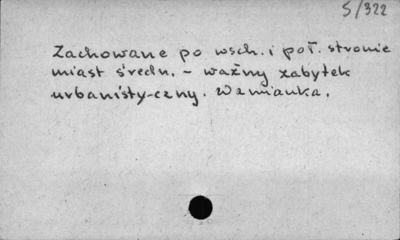 5/322
Zachowane po wsch. i poł. stronie
miast średn. – ważny zabytek
urbanisty-czny. Wzmianka.